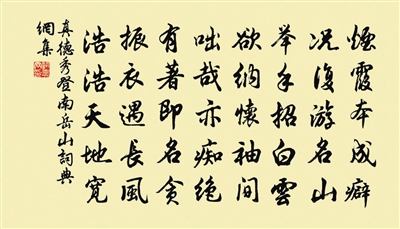 烟霞本成癖
况复游名山
举手招白雲
欲纳怀袖间
咄哉亦痴绝
有著即名贪
振衣遇长風
浩浩天地宽
真德秀登南岳山詞典
網集